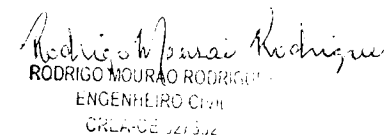 Rodrigo Mourão Rodrigu
RODRIGO MOURÃO RODRIGU
ENGENHEIRO CIVIL
CREA-CE